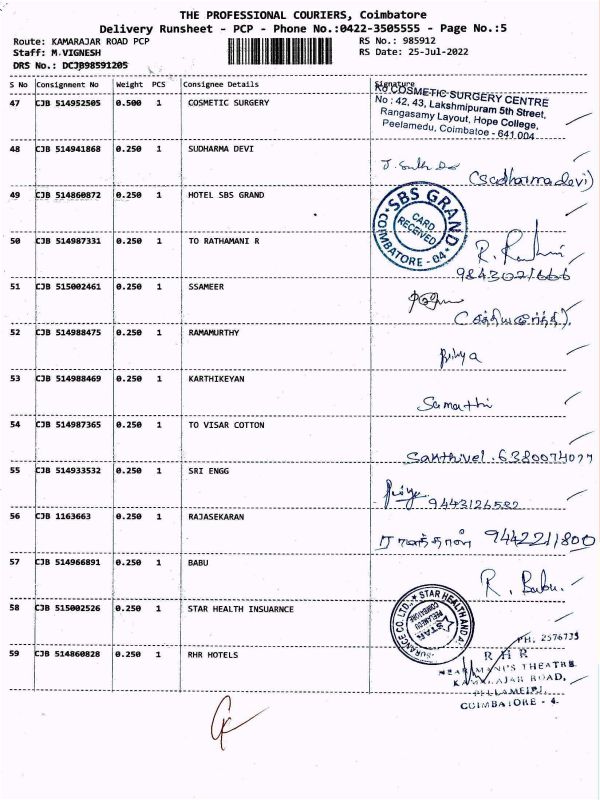 THE PROFESSIONAL COURIERS, Coimbatore
Delivery Runsheet - PCP - Phone No.:0422-3505555 - Page No.:5
Route: KAMARAJAR ROAD PCP
RS No.: 985912
Staff: M.VIGNESH
RS Date: 25-Jul-2022
DRS No.: DCJB98591205
S No Consignment No Weight PCS Consignee Details Signature
47 CJB 514952505 0.500 1 COSMETIC SURGERY
COSMETIC SURGERY CENTRE
No : 42, 43, Lakshmipuram 5th Street,
Rangasamy Layout, Hope College,
Peelamedu, Coimbatoe - 641 004
48 CJB 514941868 0.250 1 SUDHARMA DEVI
(Sudharma devi)
49 CJB 514860872 0.250 1 HOTEL SBS GRAND
SBS GRAND
CARD
RECEIVED
COIMBATORE - 04
50 CJB 514987331 0.250 1 TO RATHAMANI R
9843021666
51 CJB 515002461 0.250 1 SSAMEER
52 CJB 514988475 0.250 1 RAMAMURTHY
priya
53 CJB 514988469 0.250 1 KARTHIKEYAN
Sumathi
54 CJB 514987365 0.250 1 TO VISAR COTTON
Santhivel. 6380074077
55 CJB 514933532 0.250 1 SRI ENGG
9443126582
56 CJB 1163663 0.250 1 RAJASEKARAN
9442211800
57 CJB 514966891 0.250 1 BABU
R. Babu.
58 CJB 515002526 0.250 1 STAR HEALTH INSUARNCE
STAR HEALTH AND A
SURANCE CO. LTD.
STAR
PEELAMEDU
COIMBATORE
59 CJB 514860828 0.250 1 RHR HOTELS
PH. 2576733
R H R
NEAR MANI'S THEATRE
KAMARAJAR ROAD,
PELLAMEDU,
COIMBATORE - 4.